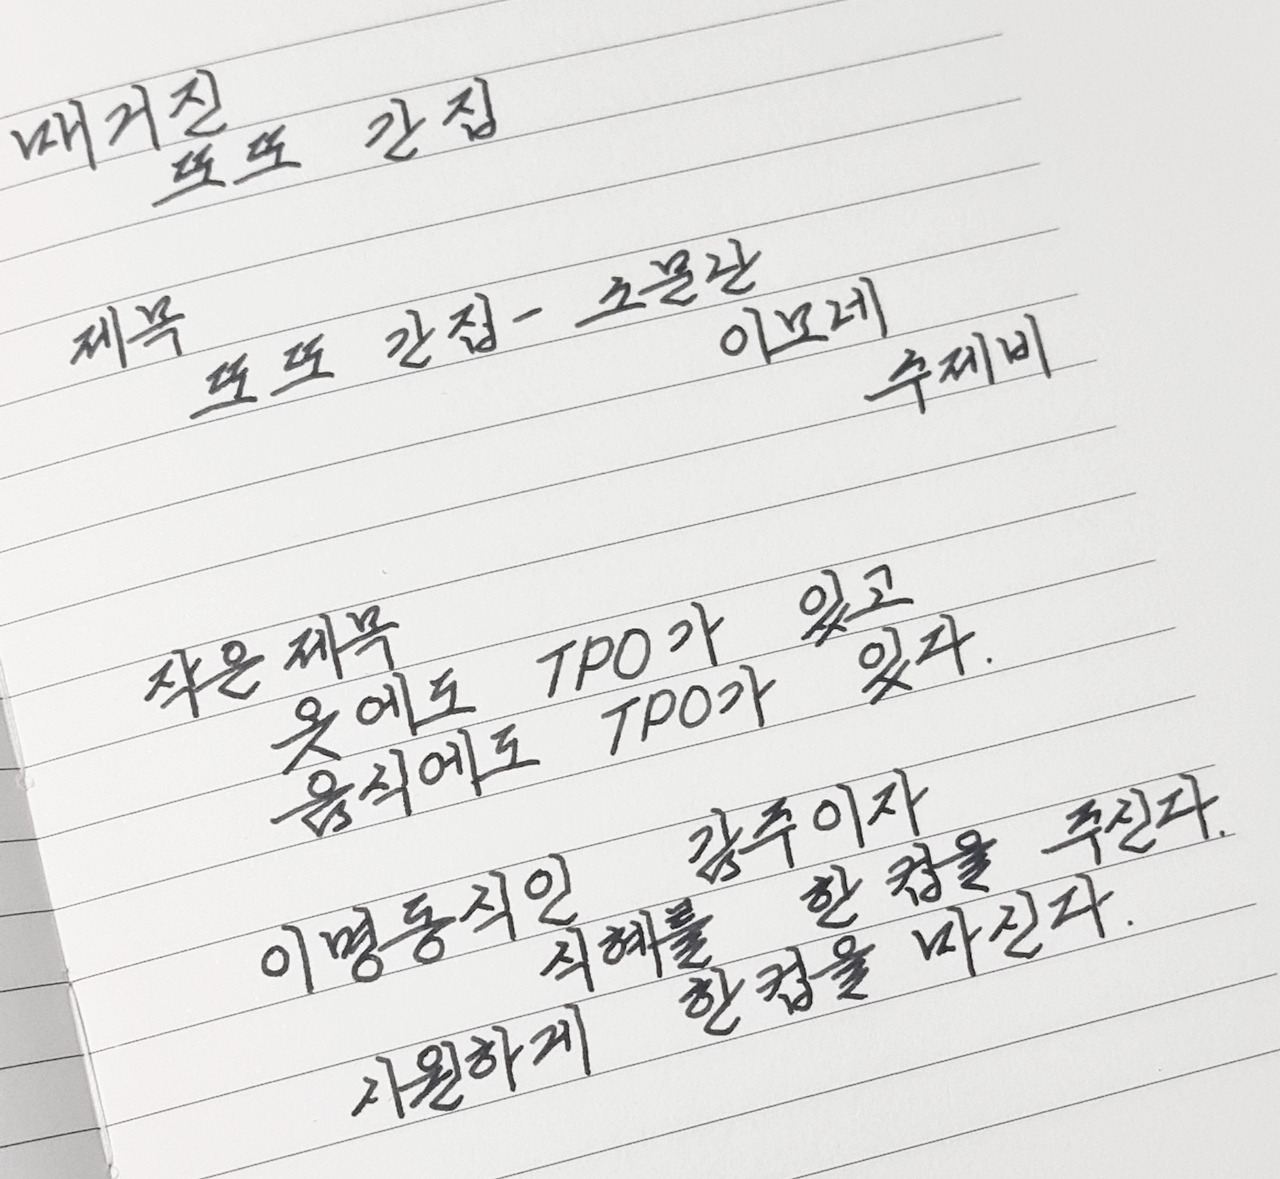 매거진
또또 간집
제목
또또 간집- 소문난
이모네
수제비
작은 제목
옷에도 TPO가 있고
음식에도 TPO가 있다.
이명동식인 감주이자
식혜를 한 컵을 주신다.
시원하게 한컵을 마신다.